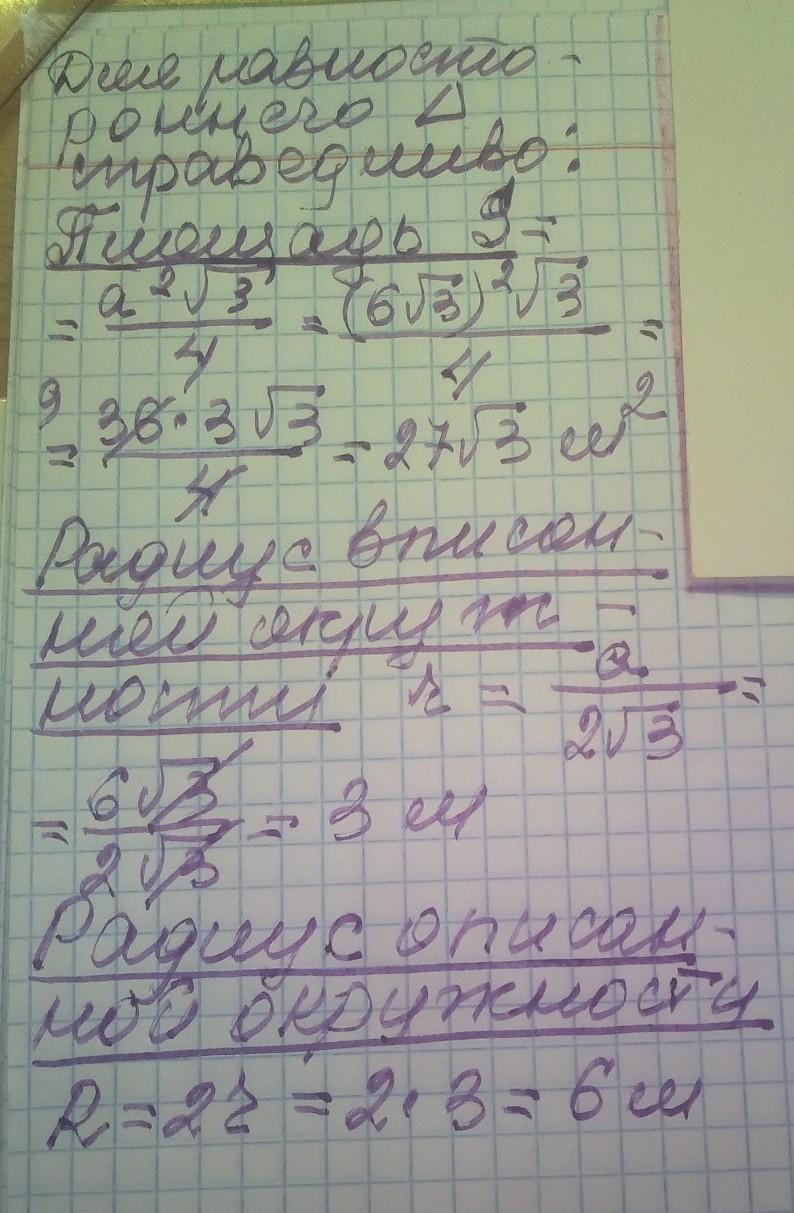 Для равносто-
роннего Δ
справедливо:
Площадь S=
= a²√3/4 = (6√3)²√3/4 =
9
= 36·3√3/4 = 27√3 м²
Радиус вписан-
ной окруж-
ности r = a/2√3 =
= 6√3/2√3 = 3 м
Радиус описан-
ной окружности
R = 2r = 2·3 = 6 м